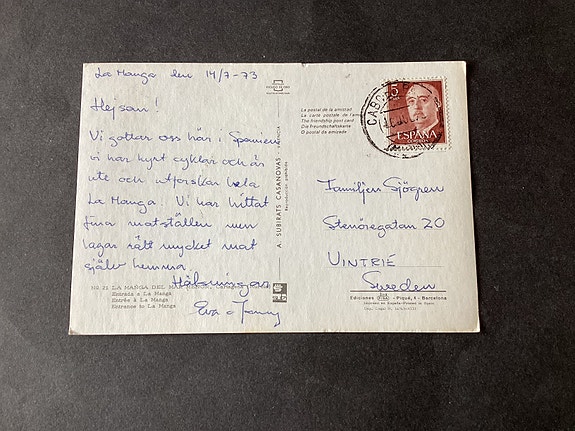 La Manga den 14/7-73
Hejsan!
Vi gottar oss här i Spanien
vi har hyrt cyklar och är
ute och utforskar hela
La Manga. Vi har hittat
fina matställen men
lagar rätt mycket mat
själv hemma.
Hälsningar
Eva o
No. 21 LA MANGA DEL MAR
Entrada a La Manga
Entrée à La Manga
Entrance to La Manga
A. SUBIRATS CASANOVAS
La postal de la amistad
La carte postale de
The friendship post card
Die Freundschaftskarte
O postal da amizade
5
ESPAÑA
CORREOS
Familjen Sjögren
Stenöregatan 20
VINTRIE
Sweden
Ediciones - Piqué, 4 - Barcelona